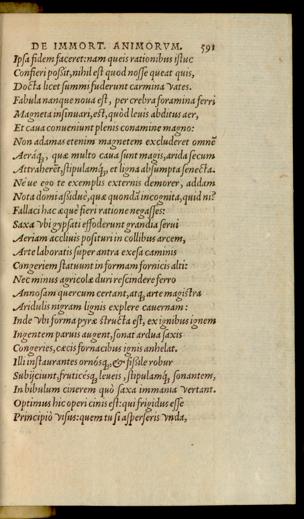 DE IMMORT. ANIMORVM. 591
Ipsa fidem faceret: nam queis rationibus istuc
Confieri poßit, nihil est quod nosse queat quis,
Docta licet summs fuderunt carmina vates.
Fabula nanque noua est, per crebra foramina ferri
Magneta insinuari, est, quòd leuis abditus aer,
Et caua conueniunt plenis conamine magno:
Non adamas etenim magnetem excluderet omnē
Aeráq́;, quæ multo caua sunt magis, arida secum
Attraherēt, stipulamq́;, et ligna absumpta senecta.
Ne ue ego te exemplis externis demorer, addam
Nota domi aßiduè, quæ quondā incognita, quid ni?
Fallaci hac æquè fieri ratione negasses:
Saxa vbi gypsati effoderunt grandia serui
Aeriam accliuis posituri in collibus arcem,
Arte laboratis super antra exesa caminis
Congeriem statuunt in formam fornicis alti:
Nec minus agricolæ duri rescindere ferro
Annosam quercum certant, atq; arte magistra
Aridulis nigram lignis explere cauernam:
Inde vbi forma pyræ structa est, ex ignibus ignem
Ingentem paruis augent, sonat ardua saxis
Congeries, cæcis fornacibus ignis anhelat.
Illi instaurantes ornósq;, & fißile robur
Subijciunt, fruticésq; leueis, stipulámq; sonantem,
In bibulum cinerem quò saxa immania vertant.
Optimus hic operi cinis est: qui frigidus esse
Principiò visus: quem tu si asperseris vnda,